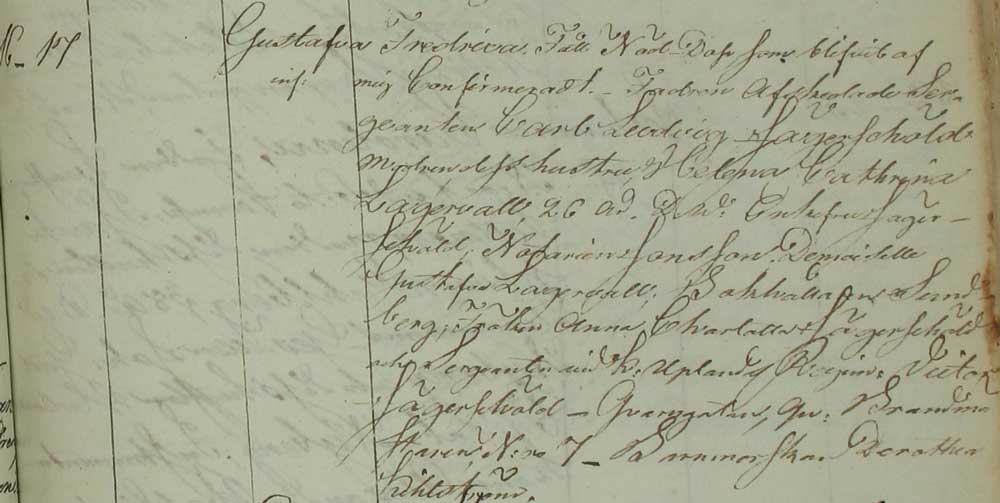 16_ 17 Gustafva Fredrica. Fått Nöd-Dop som blifvit af
inf: mig Confirmeradt. _ Fadren Afskedade Ser-
geanten Carl Ludvig Jägerschöld
Modren dess hustru, Helena Cathrina
Lagervall, 26 år. Enkefru Jäger-
schöld, Notarien Jonsson. Demoiselle
Gustafva Lagervall, Bokhållaren Sund-
berg, Fröken Anna Charlotta Jägerschöld
och Sergeanten vid K. Uplands Regim: Victor
Jägerschöld _ Qvarngatan, Qv: Brandmä-
staren, N:ro 7 _ Barnmorskan Dorothea